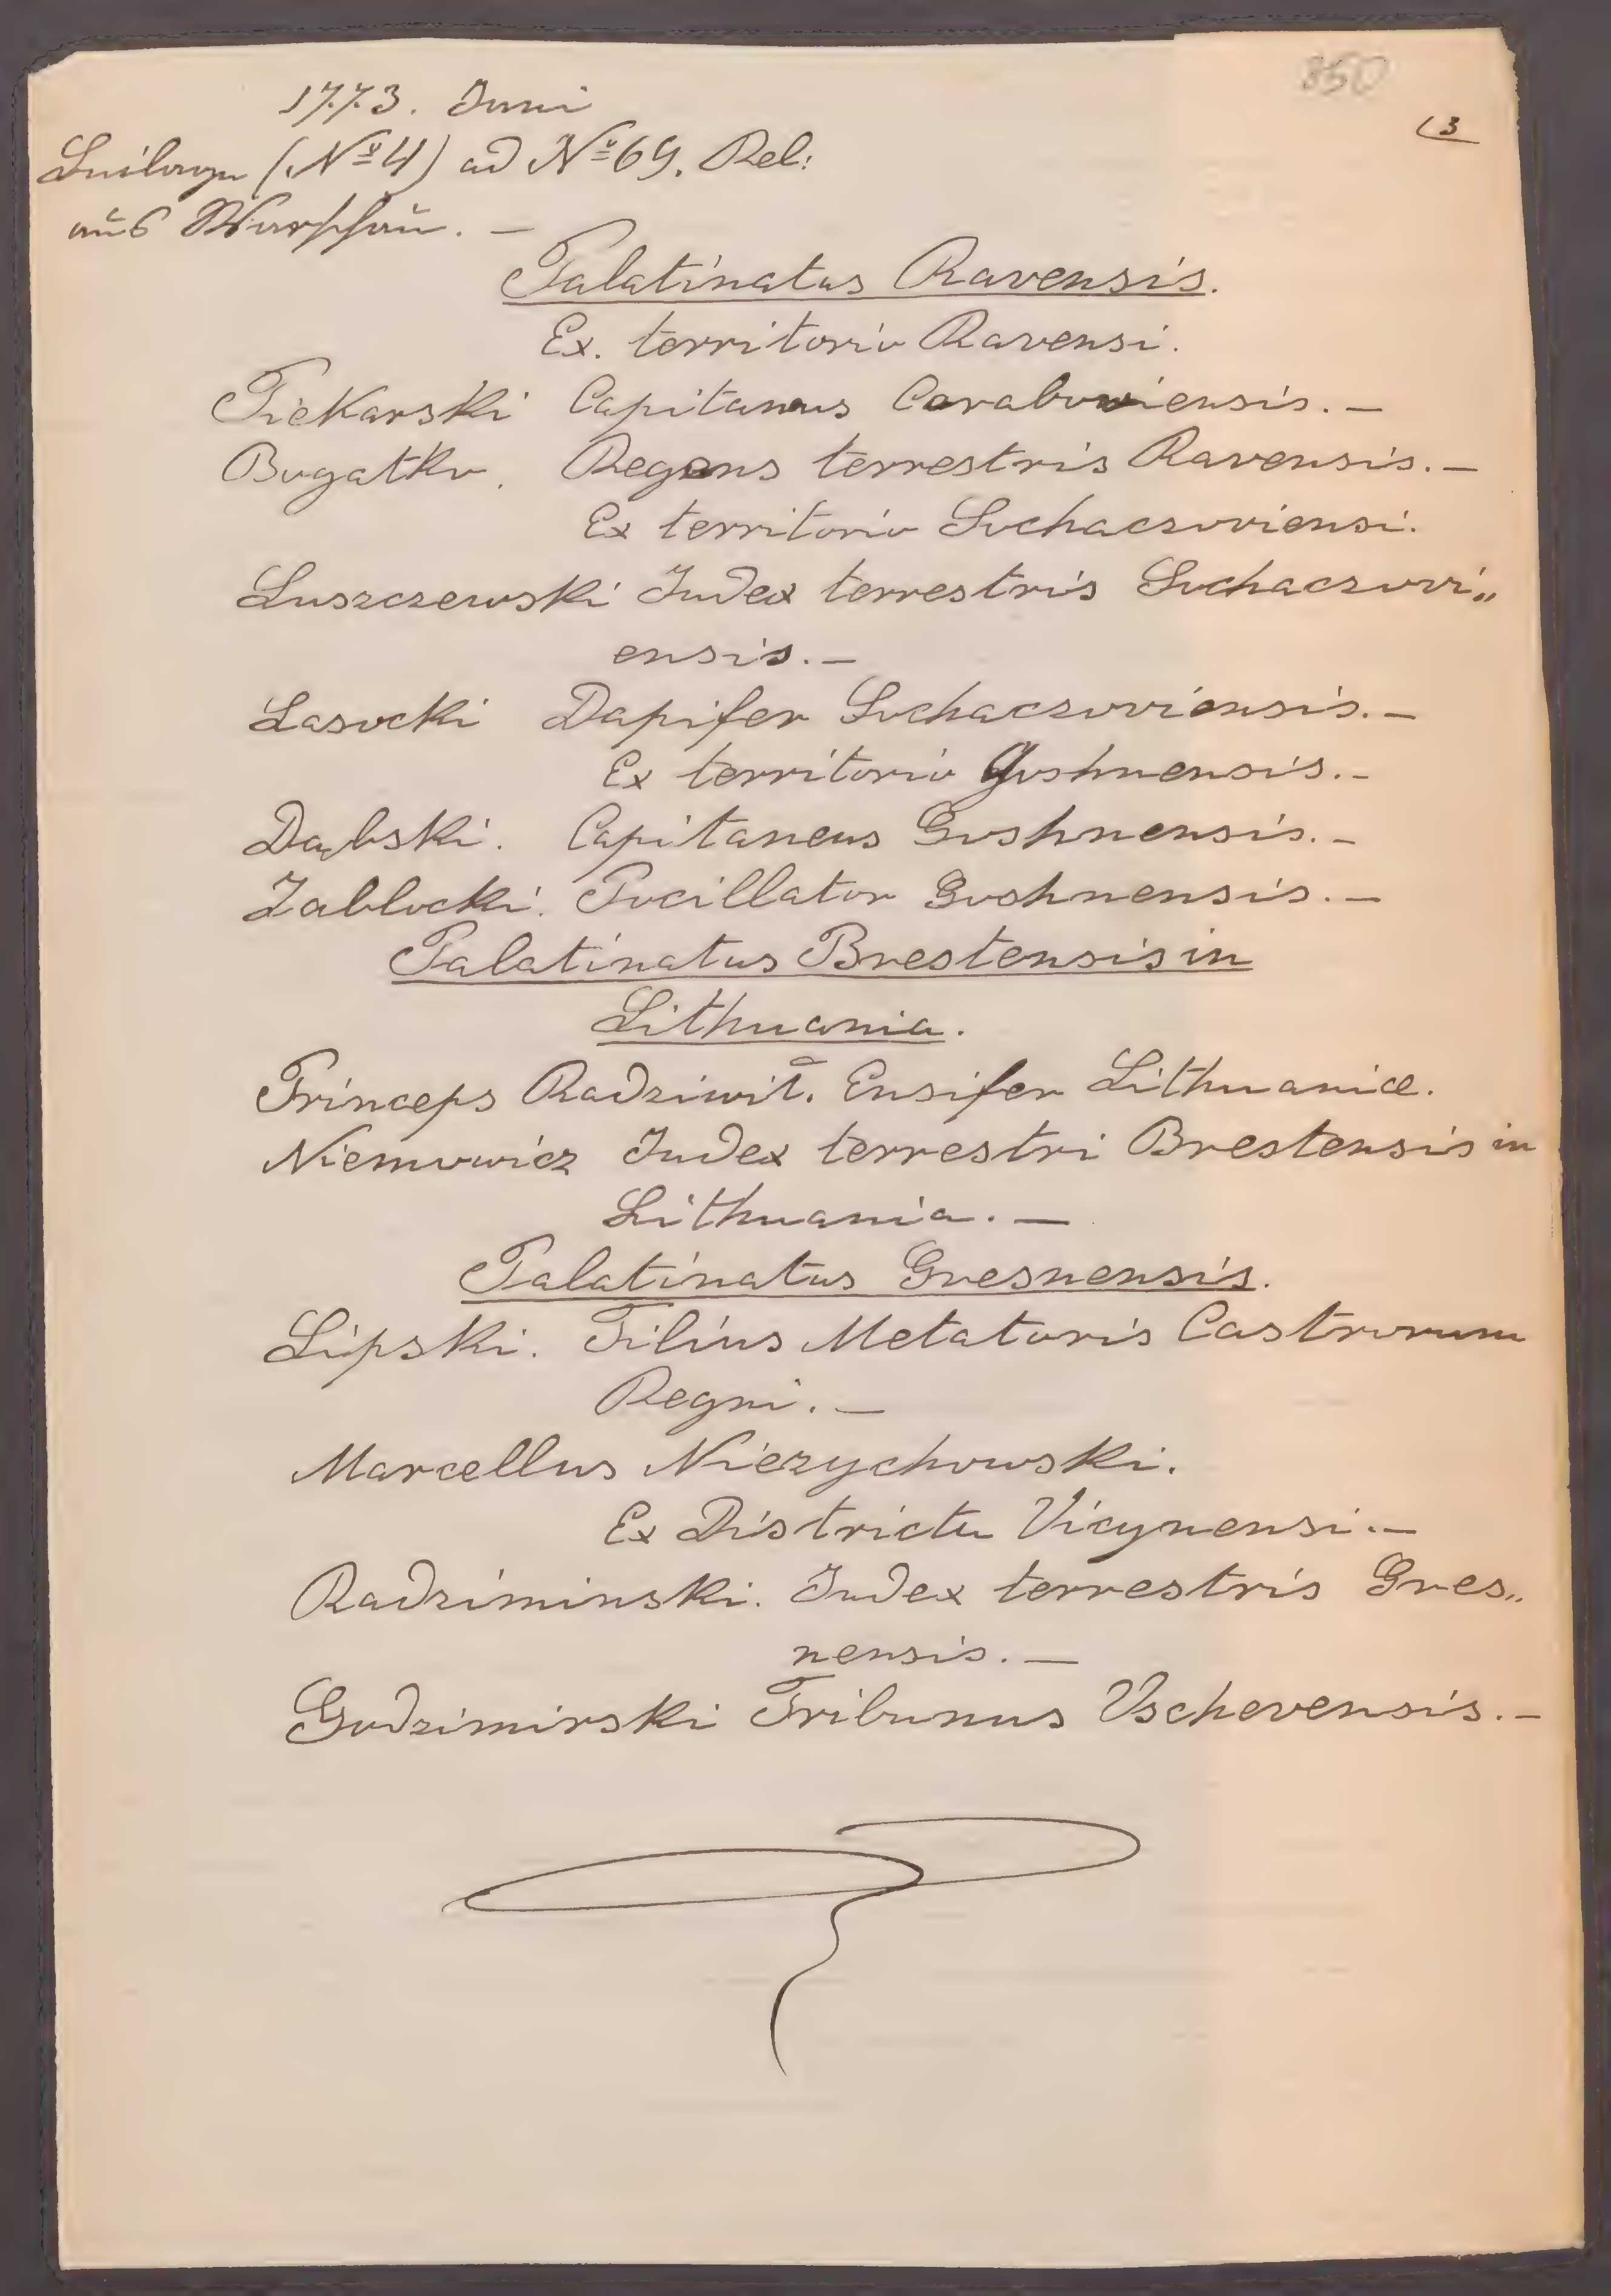 850
(3
1773. Juni
Beilage (No 4) ad No 69. Rel:
aus Warschau. —
Palatinatus Ravensis.
Ex. territorio Ravensi.
Piekarski Capitanus Carabowiensis. —
Bogatko. Regens terrestris Ravensis. —
Ex territorio Sochaczoviensi.
Luszczewski Judex terrestris Sochaczovi„
ensis. —
Lasocki Dapifer Sochaczoviensis. —
Ex territorio Goshnensis. —
Dąbski. Capitaneus Goshnensis. —
Zablocki. Pocillator Goshnensis. —
Palatinatus Brestensis in
Lithuania.
Princeps Radziwił. Ensifer Lithuaniæ.
Niemowicz Judex terrestri Brestensis in
Lithuania. —
Palatinatus Gnesnensis.
Lipski. Filius Metatoris Castrorum
Regni. —
Marcellus Niezychowski.
Ex Districtu Vicynensi. —
Radziminski. Judex terrestris Gnes„
nensis. —
Godzimirski Tribunus Vschovensis. —